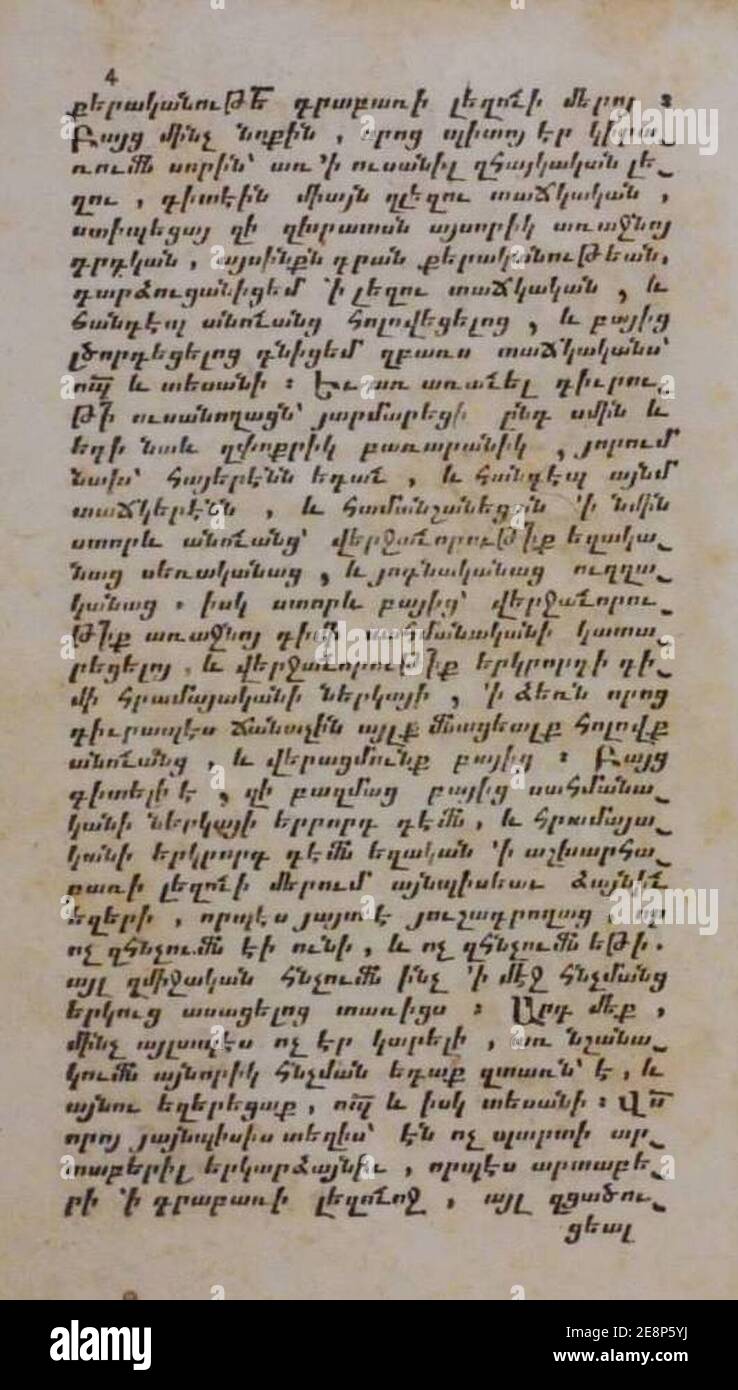 4
քերականուԹե՟ գրաբառի լեզուի մերոյ :
Բայց մինչ նոքին , որոց պիտոյ էր կիրա֊
ռումն սորին՝ առ ՚ի ուսանիլ զհայկական լե֊
զու , գիտէին միայն զլեզու տաճկական ,
ստիպեցայ զի զխրատսն այսորիկ առաջնոյ
գրդկան , այսինքն դրան քերականուԹեան,
դարձուցանիցեմ ՚ի լեզու տաճկական , և
հանդէպ անուանց հոլովեցելոց , և բայից
լծորդեցելոց դնիցեմ զբառս տաճկականս՝
որպ՟ և տեսանի : Եւ առ առաւել դիւրու֊
Թի ուսանողացն՝ յարմարեցի ընդ սմին և
եղի նաև զփոքրիկ բառարանիկ , յորում
նախ՝ հայերէնն եդաւ , և հանդէպ այնմ
տաճկերէնն , և համանշանեցան ՚ի նմին
ստորև անուանց՝ վերջաւորուԹիք եզակա֊
նաց սեռականաց , և յոգնականաց ուղղա֊
կանաց . իսկ ստորև բայից՝ վերջաւորու֊
Թիք առաջնոյ դիմի սահմանականի կատա֊
րեցելոյ , և վերջաւորուԹիք երկրորդի դի֊
մի հրամայականի ներկայի , ՚ի ձեռն որոց
դիւրապէս ճանաչին այլք մնացեալք հոլովք
անուանց , և վերացմունք բայից : Բայց
գիտելի է , զի բազմաց բայից սահմանա֊
կանի ներկայի երրորդ դէմն , և հրամայա֊
կանի երկրորդ դէմն եզական ՚ի աշխարհա֊
բառի լեզուի մերում այնպիսեաւ ձայնիւ
եզերի , որպէս յայտ է յուշադրողաց , որ
ոչ զհնչումն էի ունի , և ոչ զհնչումն եԹի .
այլ զմիջական հնչումն ինչ ՚ի մէջ հնչմանց
երկուց ասացելոց տառիցս : Արդ մեք ,
մինչ այլապէս ոչ էր կարելի , առ նշանա֊
կումն այնորիկ հնչման եդաք զտառն՝ է , և
այնու եզերեցաք , որպ՟ և իսկ տեսանի : Վս՟
որոյ յայնպիսիս տեղիս՝ էն ոչ պարտի ար֊
տաբերիլ երկարձայնիւ , որպէս արտաբե֊
րի ՚ի գրաբառի լեզուոջ , այլ զցածու֊
ցեալ
alamy
Image ID: 2E8P5YJ
www.alamy.com